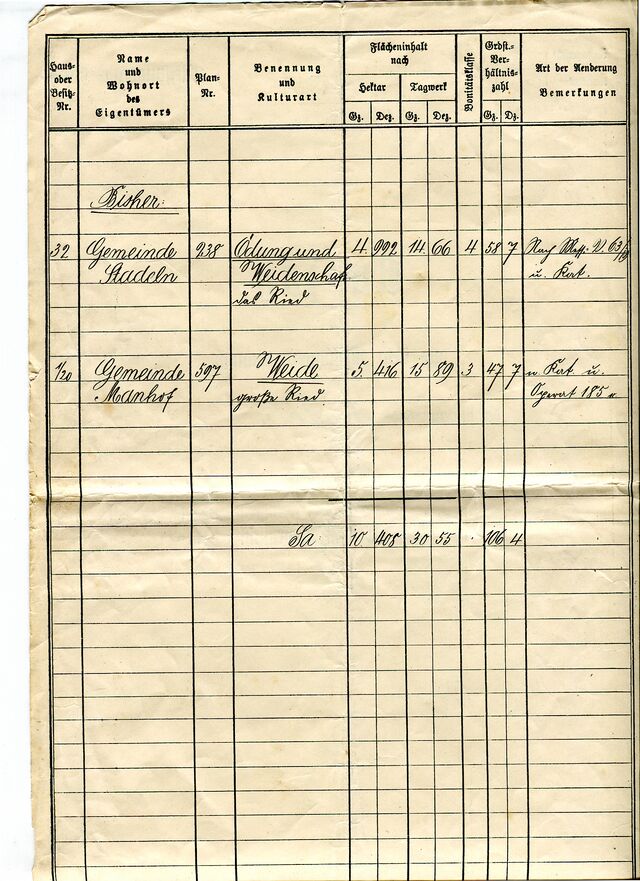 Haus- oder Besitz- Nr.
Name und Wohnort des Eigentümers
Plan- Nr.
Benennung und Kulturart
Flächeninhalt nach
Hektar
Tagwerk
Gz. Dez. Gz. Dez.
Bonitätsklasse
Grdst.- Ver- hältnis- zahl
Gz. Dz.
Art der Aenderung
Bemerkungen
Bisher:
32 Gemeinde 238 Ödung und 4. 992 14. 66 4 58 7 Nach Mess. V. 63/
Stadeln Weidenschaft u. Kat.
das Ried
1/20 Gemeinde 597 Weide 5. 416 15 89 3 47 7 n Kat u.
Manhof große Ried. Operat 185
Sa: 10 408 30 55 106 4